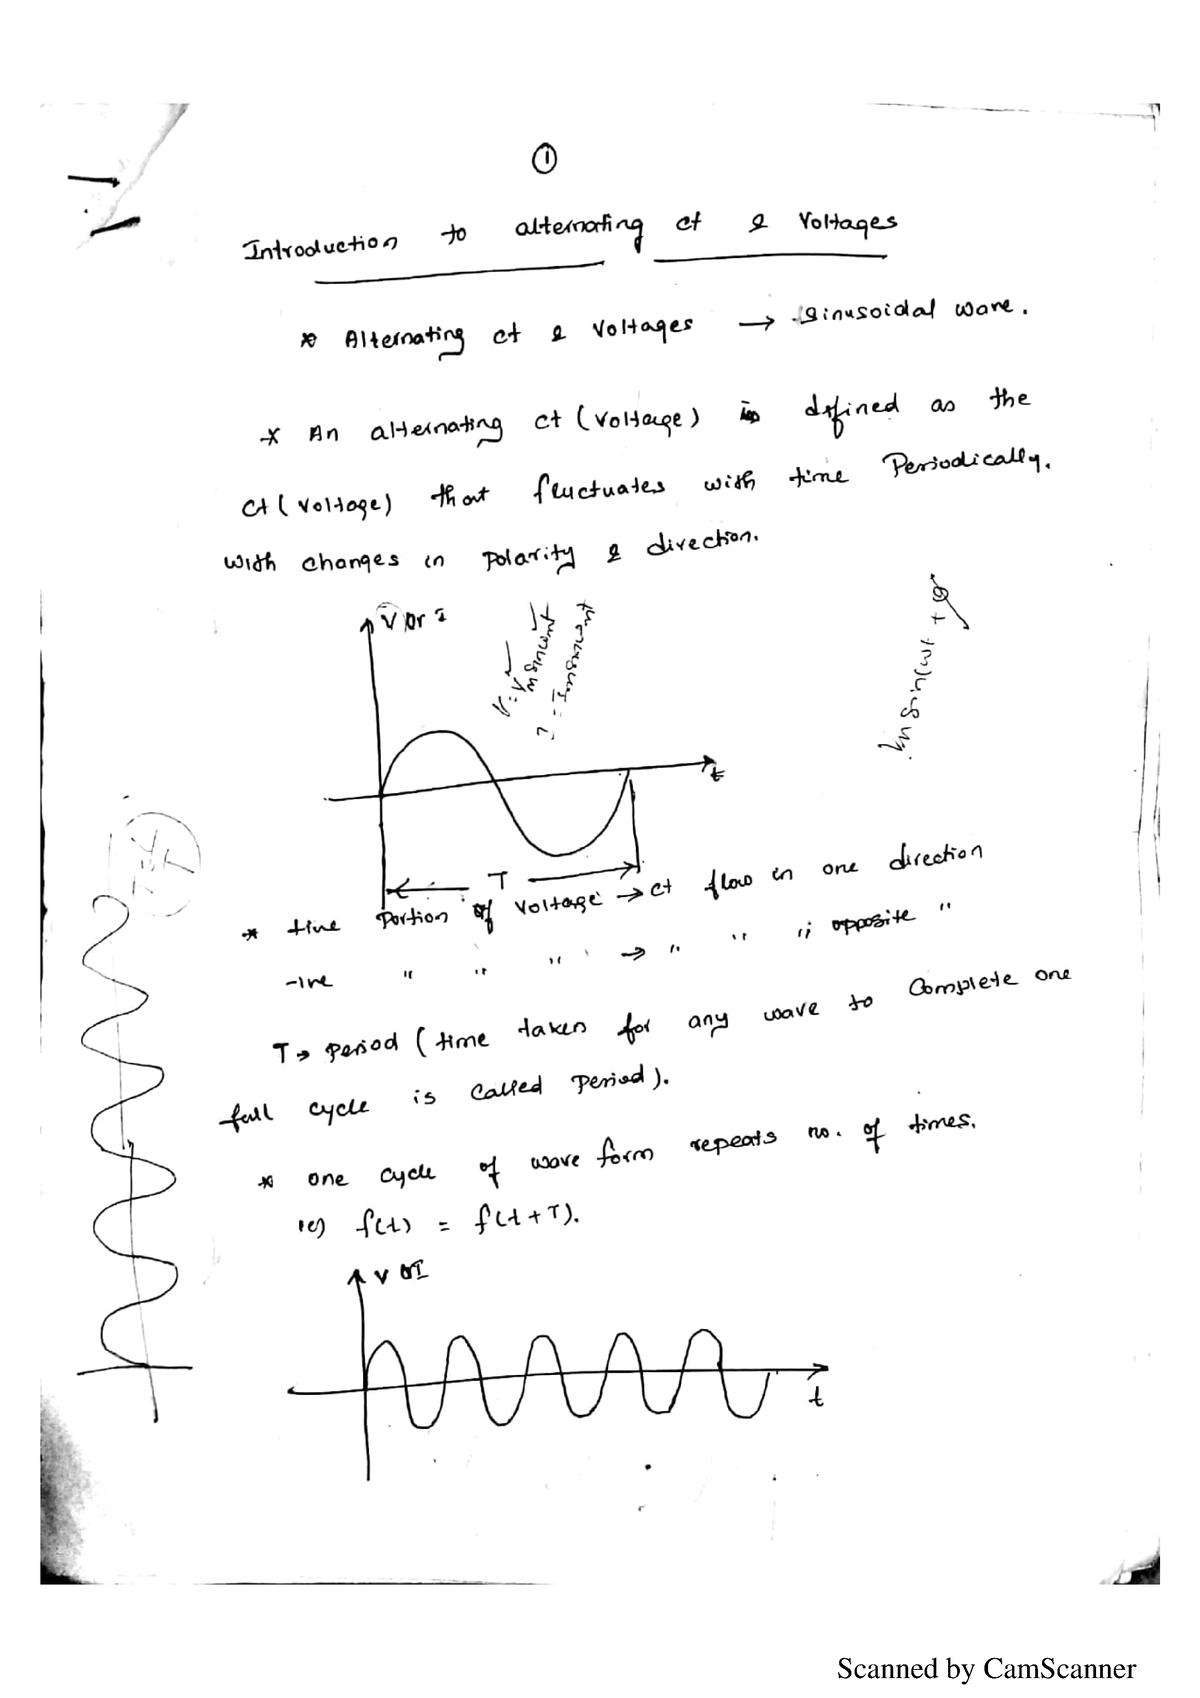 ①
Introduction to alternating ct & Voltages
* Alternating ct & Voltages → Sinusoidal wave.
* An alternating ct (voltage) is defined as the
ct (voltage) that fluctuates with time Periodically.
with changes in polarity & direction.
V or I
V = Vm sin ωt
i = Im sin ωt
t
T
* +ive Portion of Voltage → ct flow in one direction
-ive " " " → " " " opposite "
T → Period (time taken for any wave to Complete one
full cycle is Called Period).
* one cycle of wave form repeats no. of times.
ie) f(t) = f(t + T).
V or I
t
Scanned by CamScanner